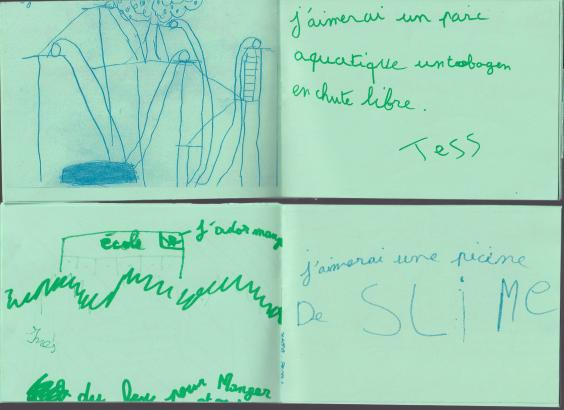 j'aimerai un parc
aquatique untobogen
en chute libre.
Tess
école
J'ador mang
Ines
des lieux pour Manger
j'aimerai une picine
De SLiMe